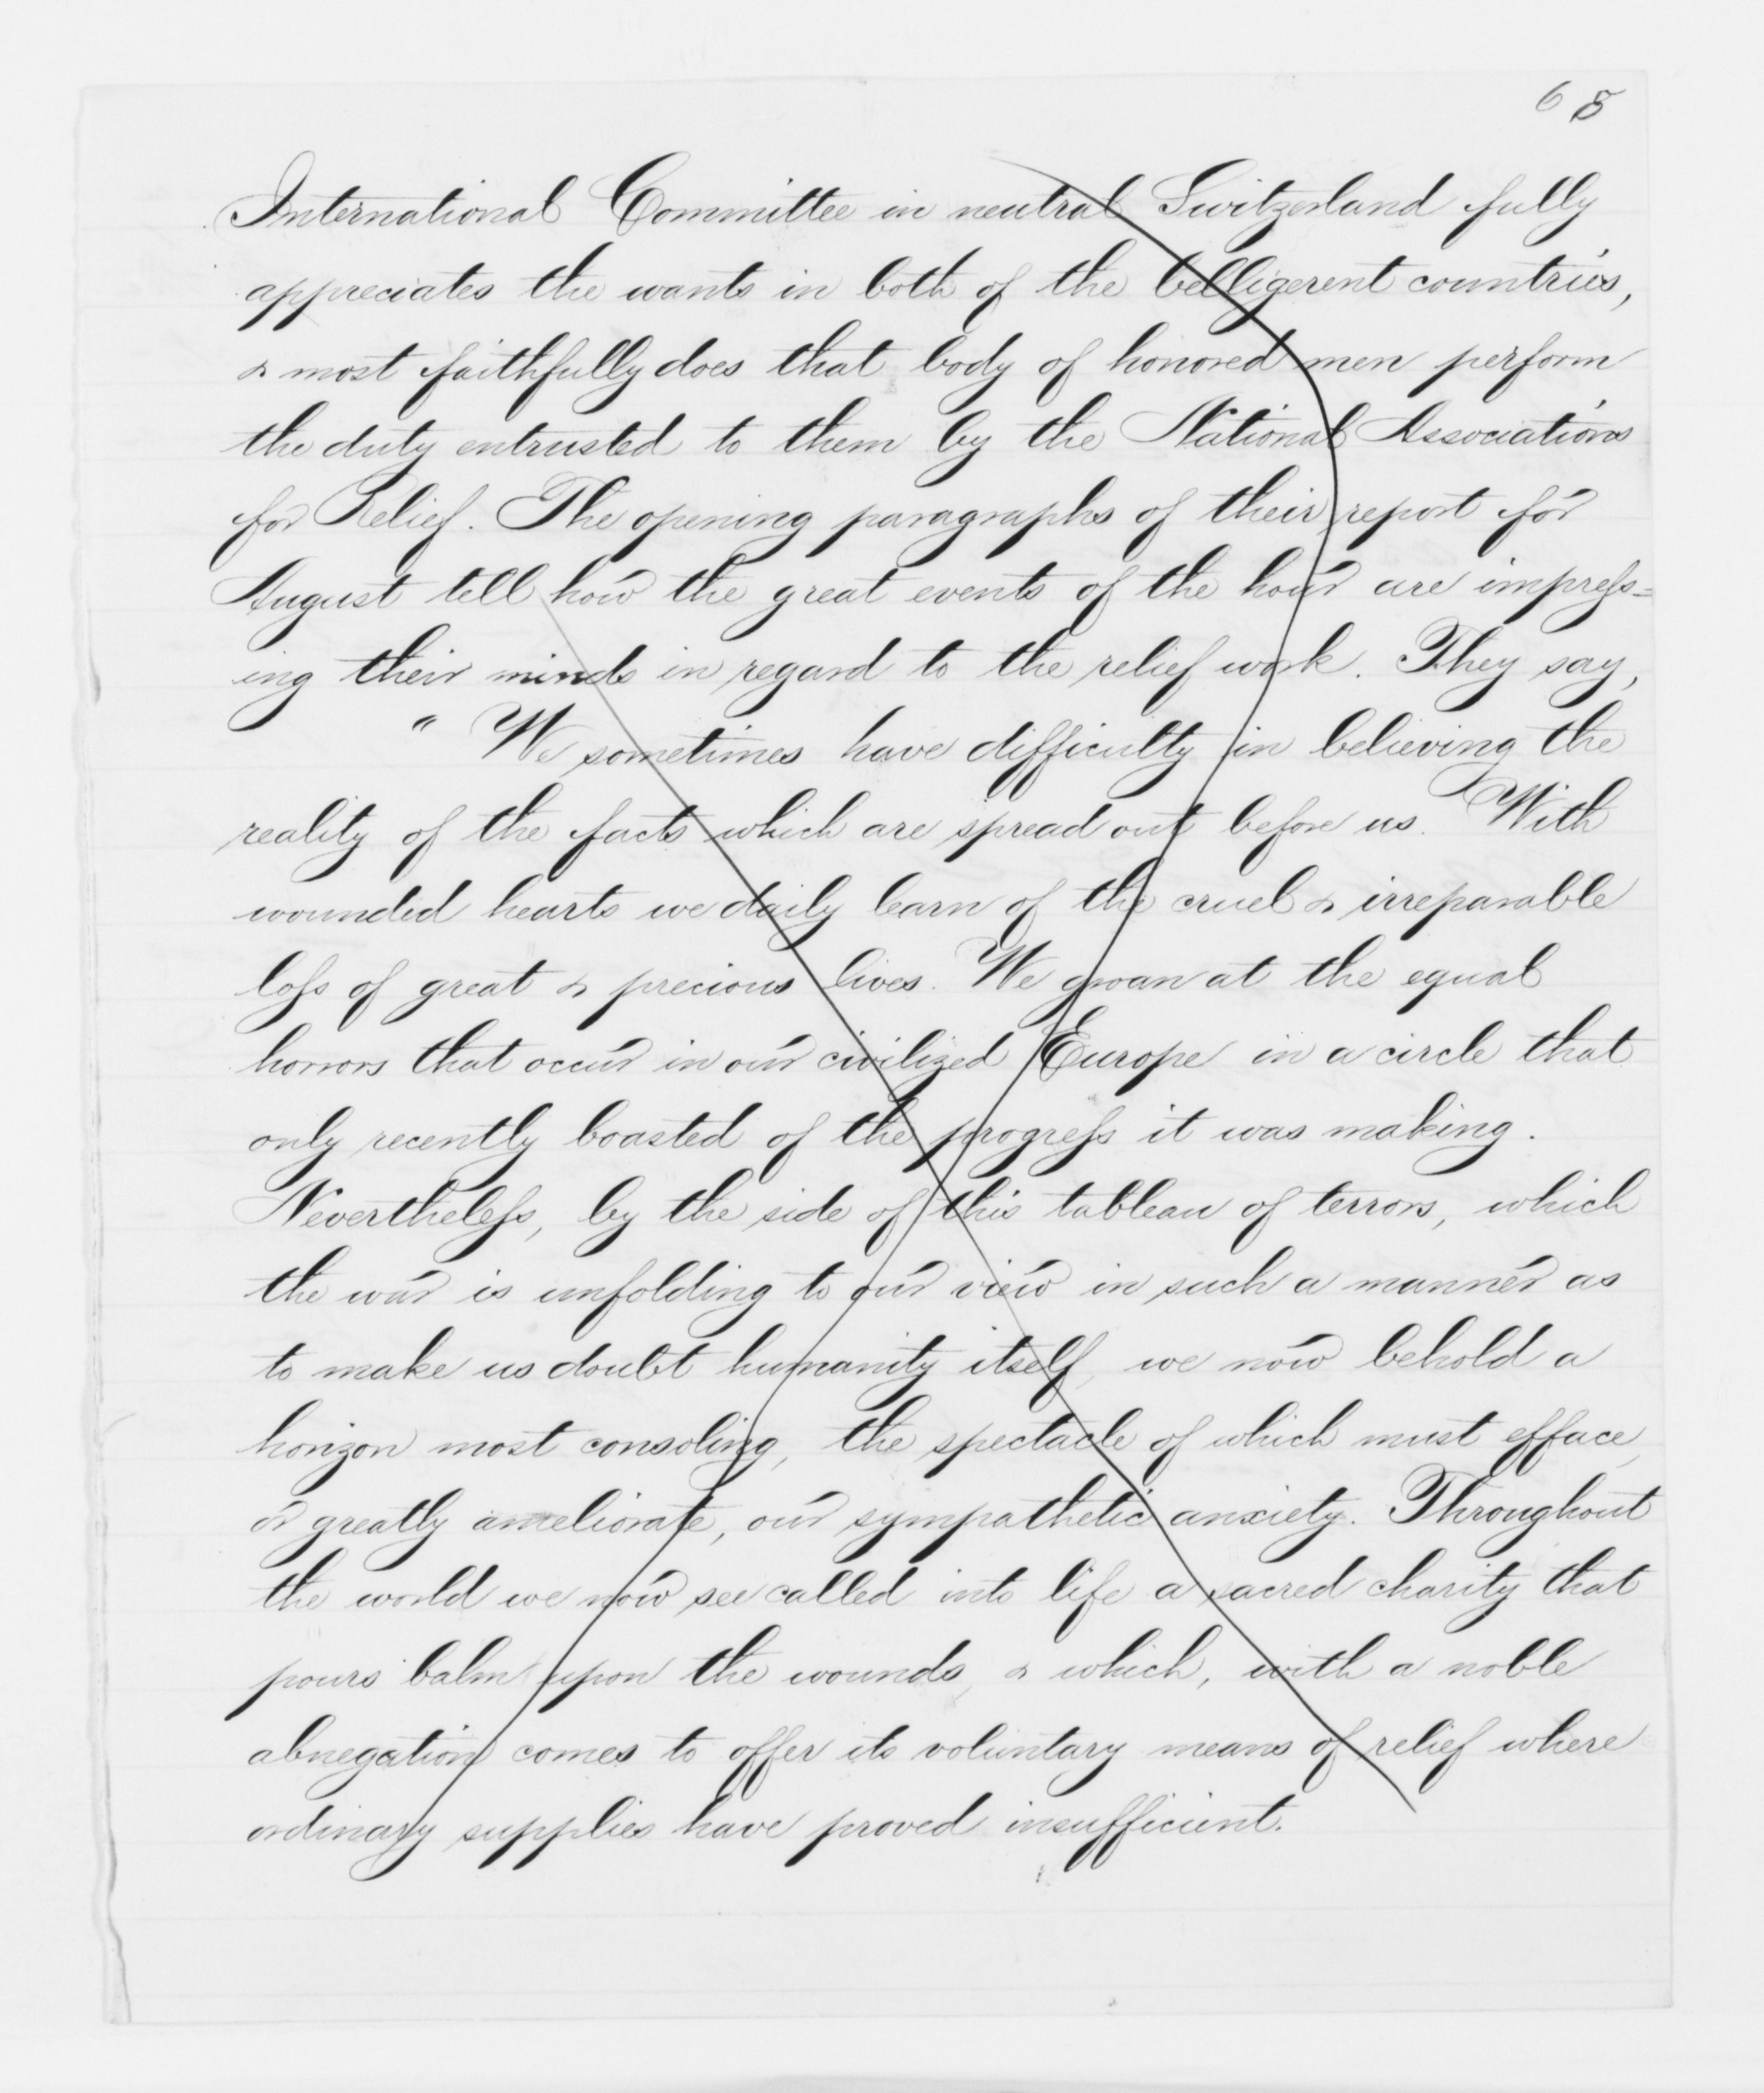 68
International Committee in neutral Switzerland fully
appreciates the wants in both of the belligerent countries,
& most faithfully does that body of honored men perform
the duty entrusted to them by the National Associations
for Relief. The opening paragraphs of their report for
August tell how the great events of the hour are impress=
ing their minds in regard to the relief work. They say,
" We sometimes have difficulty in believing the
reality of the facts which are spread out before us. With
wounded hearts we daily learn of the cruel & irreparable
loss of great & precious lives. We groan at the equal
horrors that occur in our civilized Europe in a circle that
only recently boasted of the progress it was making.
Nevertheless, by the side of this tableau of terrors, which
the war is unfolding to our view in such a manner as
to make us doubt humanity itself, we now behold a
horizon most consoling, the spectacle of which must efface,
or greatly ameliorate, our sympathetic anxiety. Throughout
the world we now see called into life a sacred charity that
pours balm upon the wounds, & which, with a noble
abnegation comes to offer its voluntary means of relief where
ordinary supplies have proved insufficient.